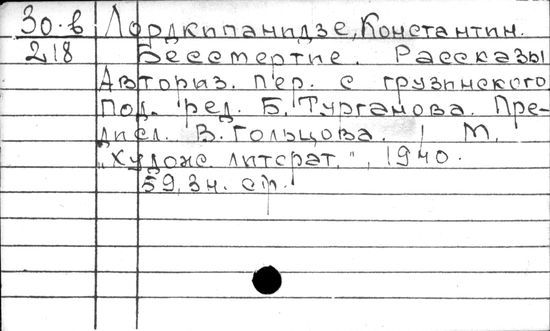 30-в Лордкипанидзе, Константин.
218 Бессмертие. Рассказы
Авториз. пер. с грузинского
под. ред. Б. Турганова. Пре-
дисл. В. Гольцова. М.
„Художе. литерат.", 1940.
59, 3 н. стр.